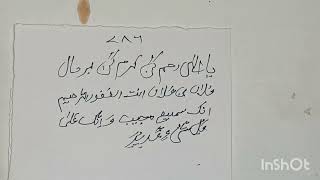 ۷۸۶
یا الٰہی رحم کی کرم کی ہر حال
فلاں بن فلاں انت الغفور الرحیم
انک سمیع مجیب و انک علی
کل شئی قدیر
InShOt